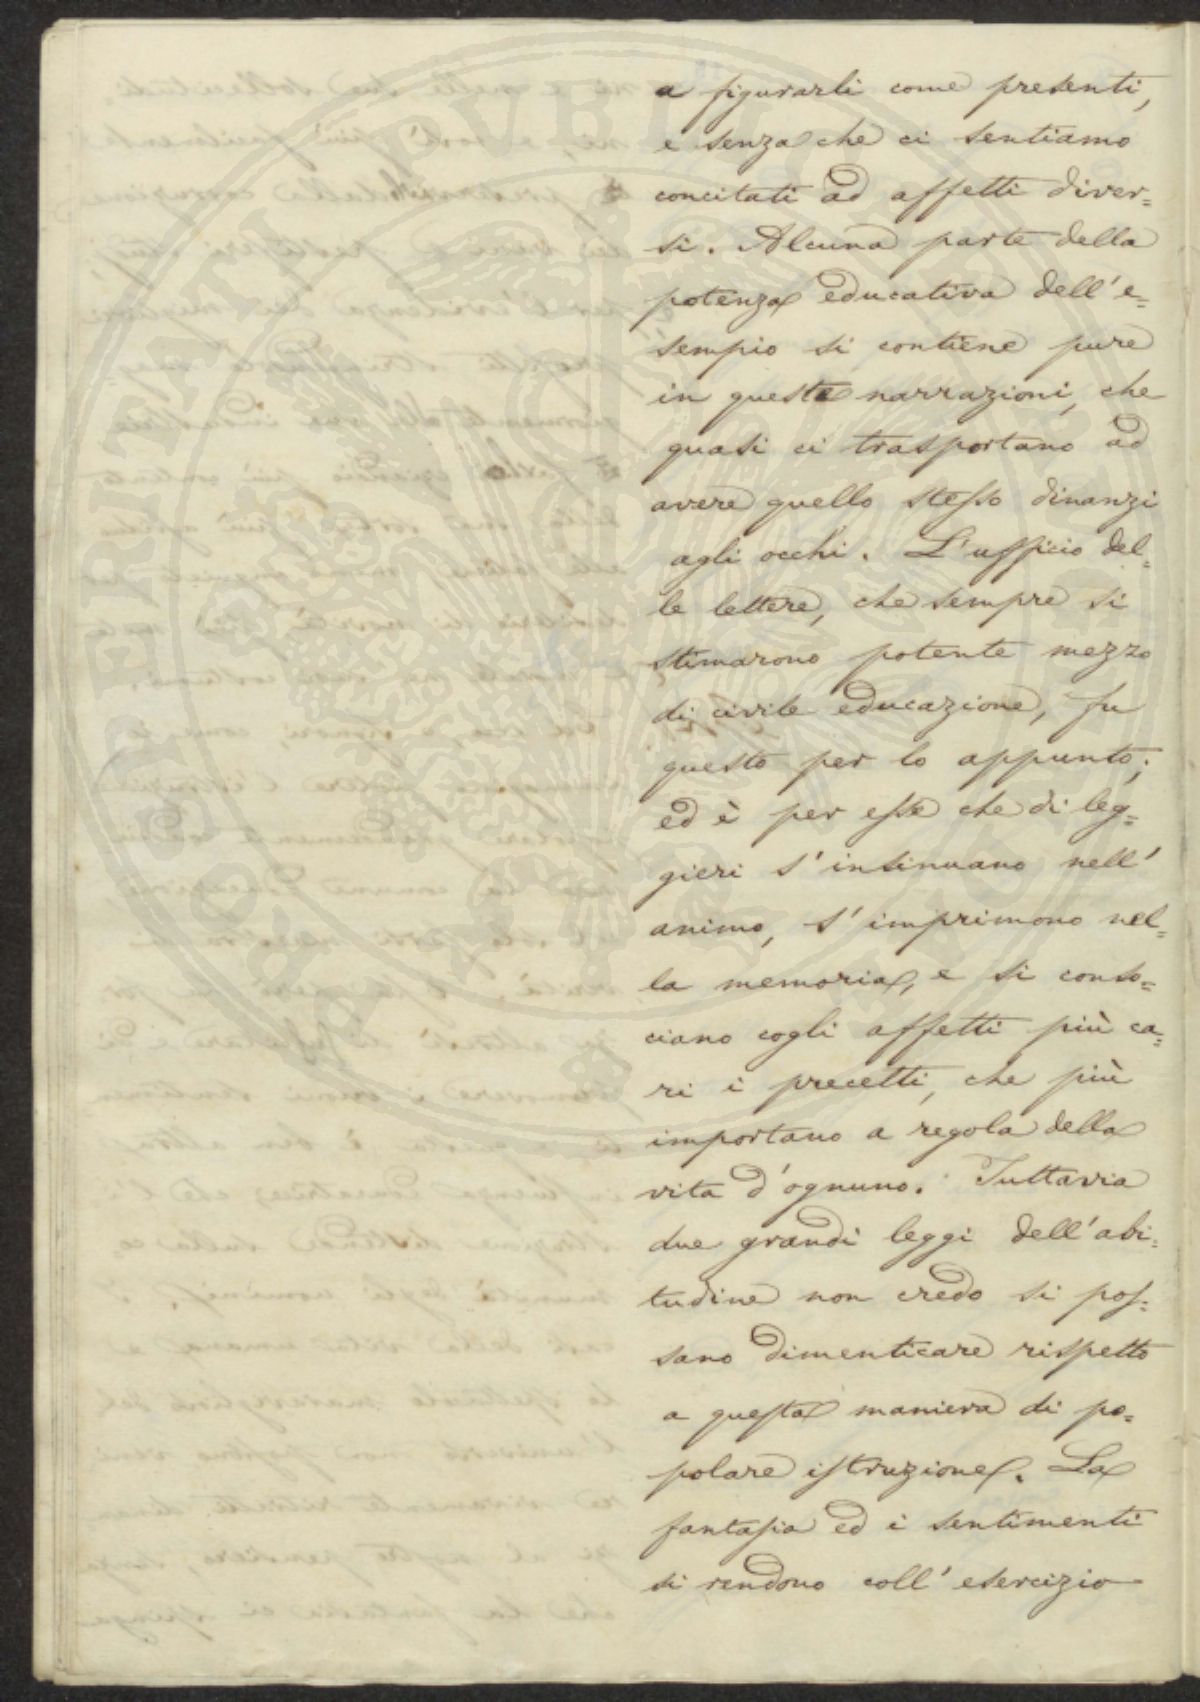 a figurarli come presenti,
e senza che ci sentiamo
concitati ad affetti diver=
si. Alcuna parte della
potenza educativa dell'e=
sempio si contiene pure
in queste narrazioni, che
quasi ci trasportano ad
avere quello stesso dinanzi
agli occhi. L'ufficio del=
le lettere, che sempre si
stimarono potente mezzo
di civile educazione, fu
questo per lo appunto;
ed è per esse che di leg=
gieri s'insinuano nell'
animo, s'imprimono nel=
la memoria, e si conso=
ciano cogli affetti più ca=
ri i precetti, che più
importano a regola della
vita d'ognuno. Tuttavia
due grandi leggi dell'abi=
tudine non credo si pos=
sano dimenticare rispetto
a questa maniera di po=
polare istruzione. La
fantasia ed i sentimenti
si rendono coll'esercizio